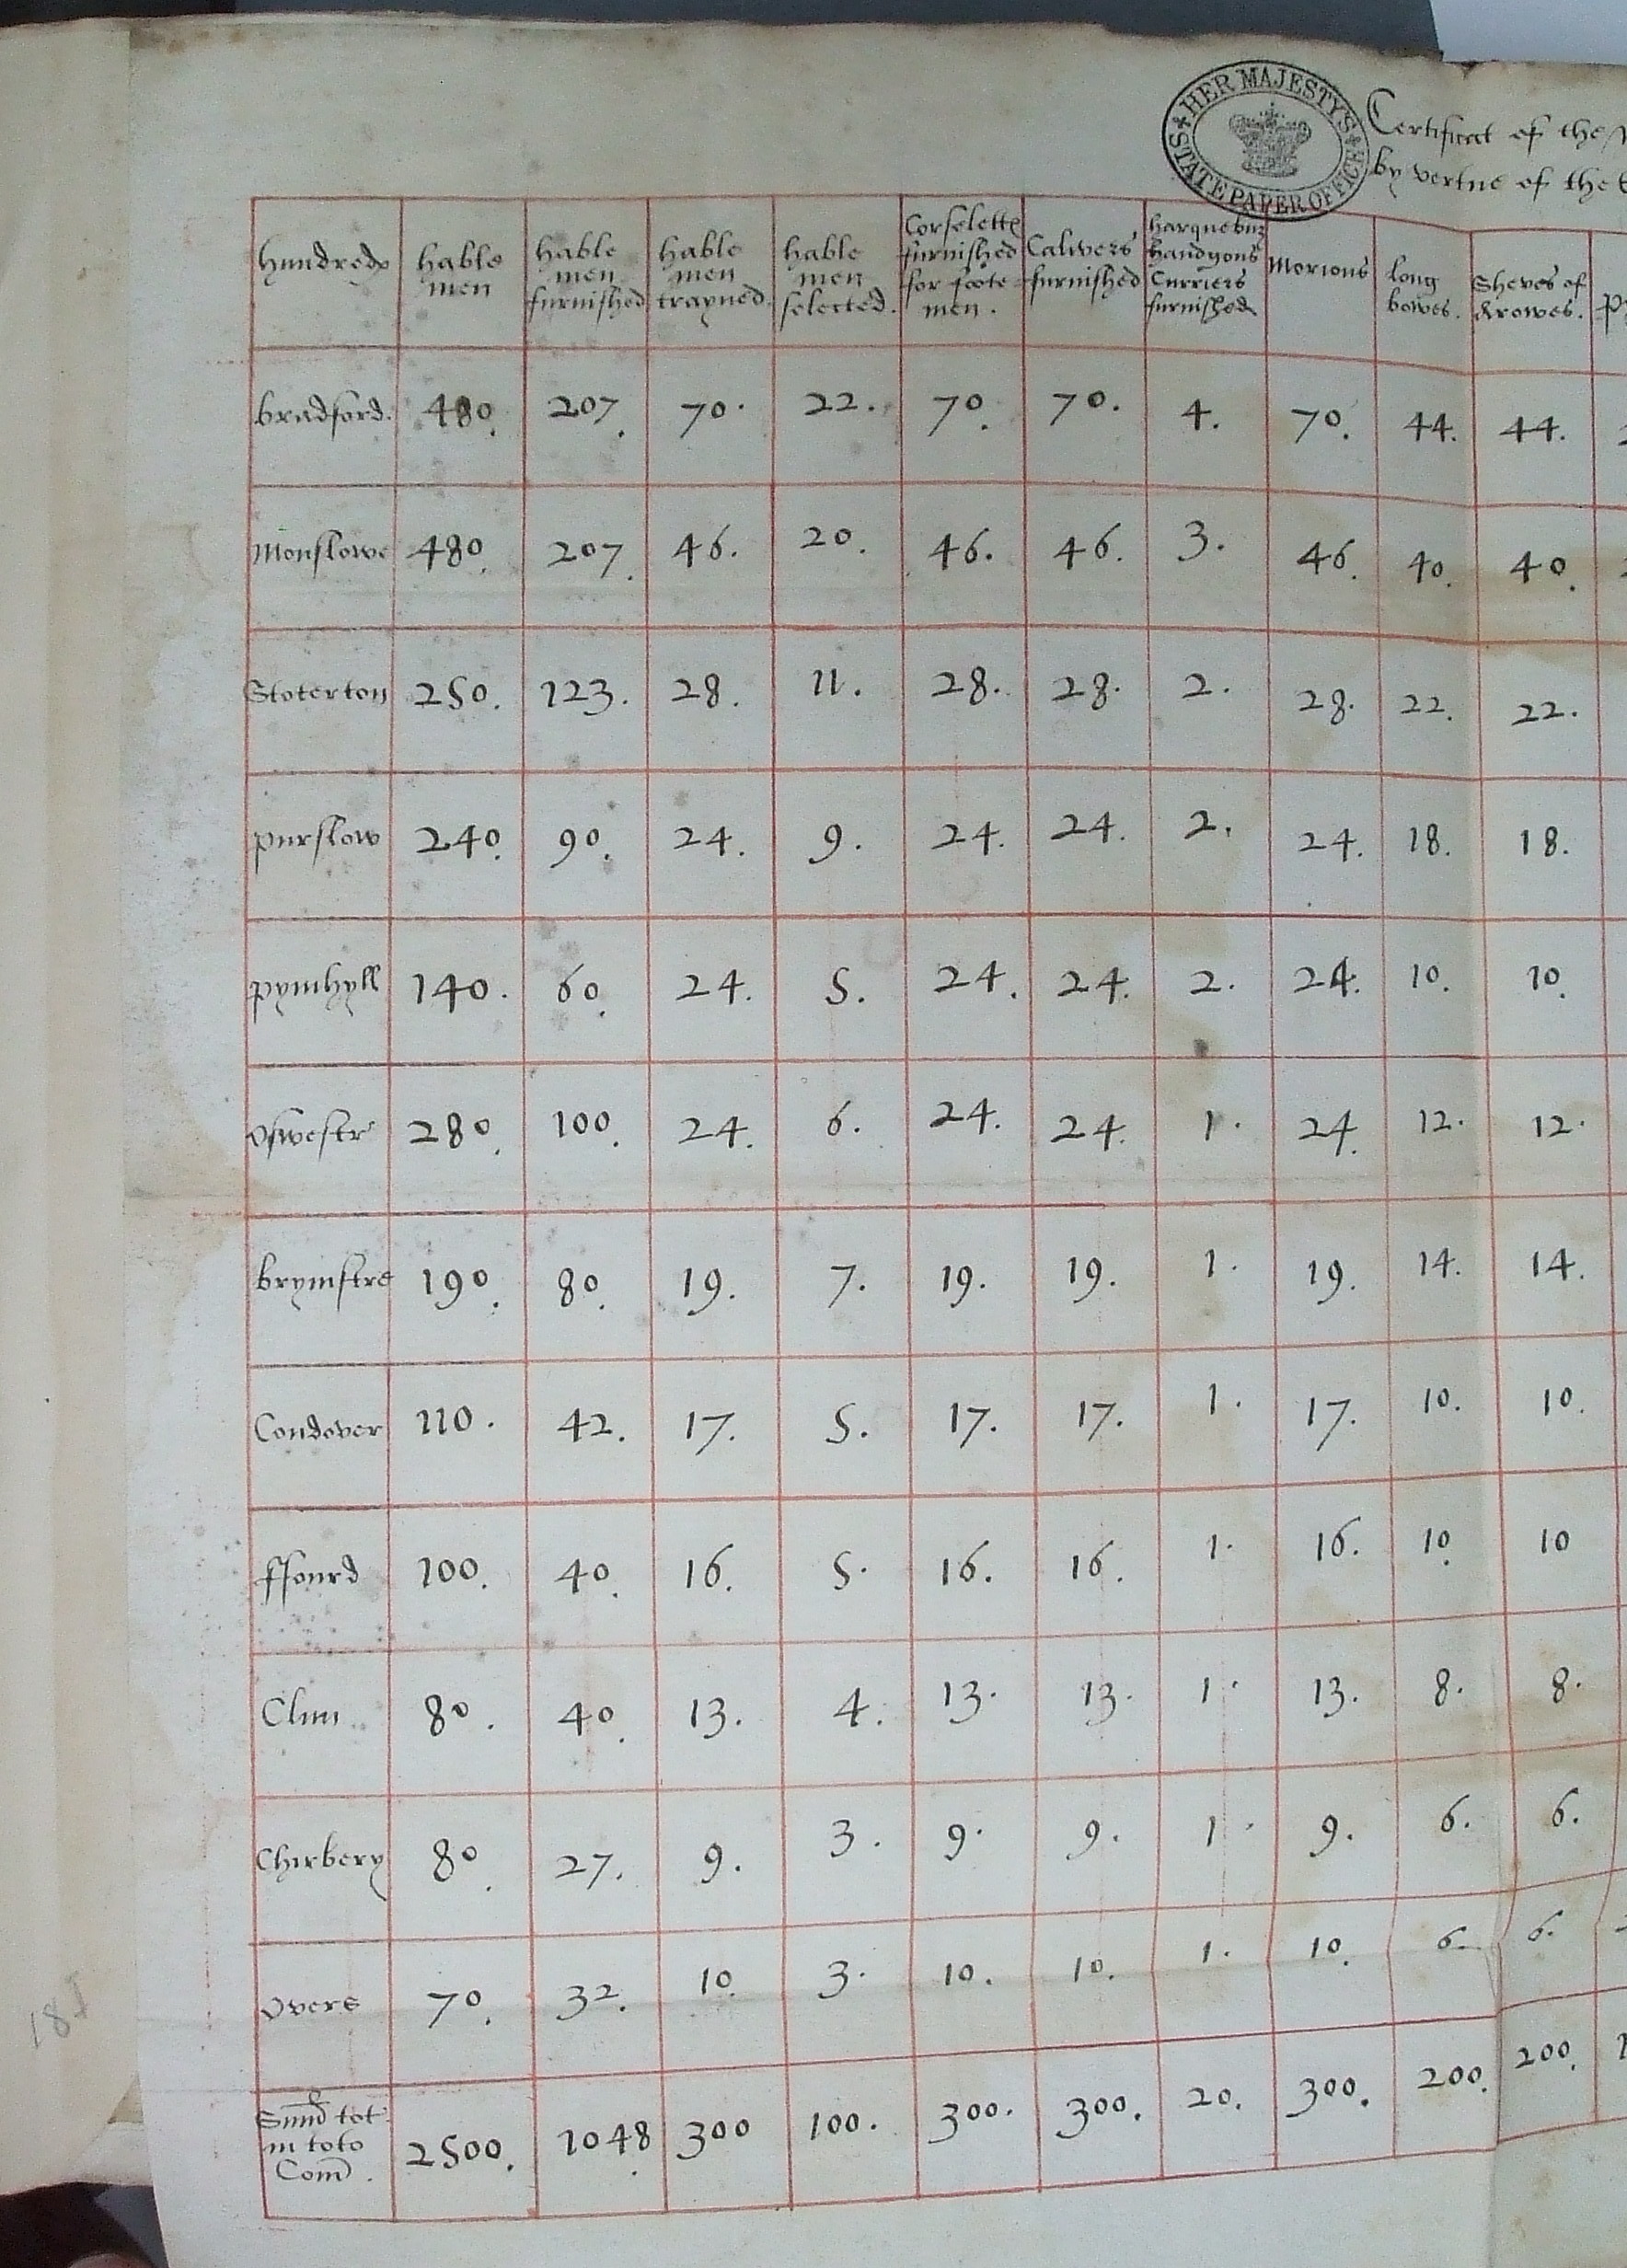 HER MAJESTYS
STATE PAPER OFFICE
Certificat of the
by vertue of the
hundredes | hable men | hable men furnished | hable men trayned. | hable men selected. | Corselettes furnished for foote men. | Calivers furnished | harquebuz handgons Curriers furnished | Morions | long bowes. | Sheves of Arowes.
bradford. | 480. | 207. | 70. | 22. | 70. | 70. | 4. | 70. | 44. | 44.
Monslowe | 480. | 207. | 46. | 20. | 46. | 46. | 3. | 46. | 40. | 40.
Stoterton | 250. | 123. | 28. | 11. | 28. | 28. | 2. | 28. | 22. | 22.
purslow | 240. | 90. | 24. | 9. | 24. | 24. | 2. | 24. | 18. | 18.
pymhyll | 140. | 60. | 24. | 5. | 24. | 24. | 2. | 24. | 10. | 10.
Oswestr | 280. | 100. | 24. | 6. | 24. | 24. | 1. | 24. | 12. | 12.
brymstre | 190. | 80. | 19. | 7. | 19. | 19. | 1. | 19. | 14. | 14.
Condover | 110. | 42. | 17. | 5. | 17. | 17. | 1. | 17. | 10. | 10.
ffourd | 100. | 40. | 16. | 5. | 16. | 16. | 1. | 16. | 10. | 10
Clun | 80. | 40. | 13. | 4. | 13. | 13. | 1. | 13. | 8. | 8.
Chirbery | 80. | 27. | 9. | 3. | 9. | 9. | 1. | 9. | 6. | 6.
Overs | 70. | 32. | 10. | 3. | 10. | 10. | 1. | 10. | 6. | 6.
Summ tot in toto Com. | 2500. | 1048. | 300 | 100. | 300. | 300. | 20. | 300. | 200. | 200.
181